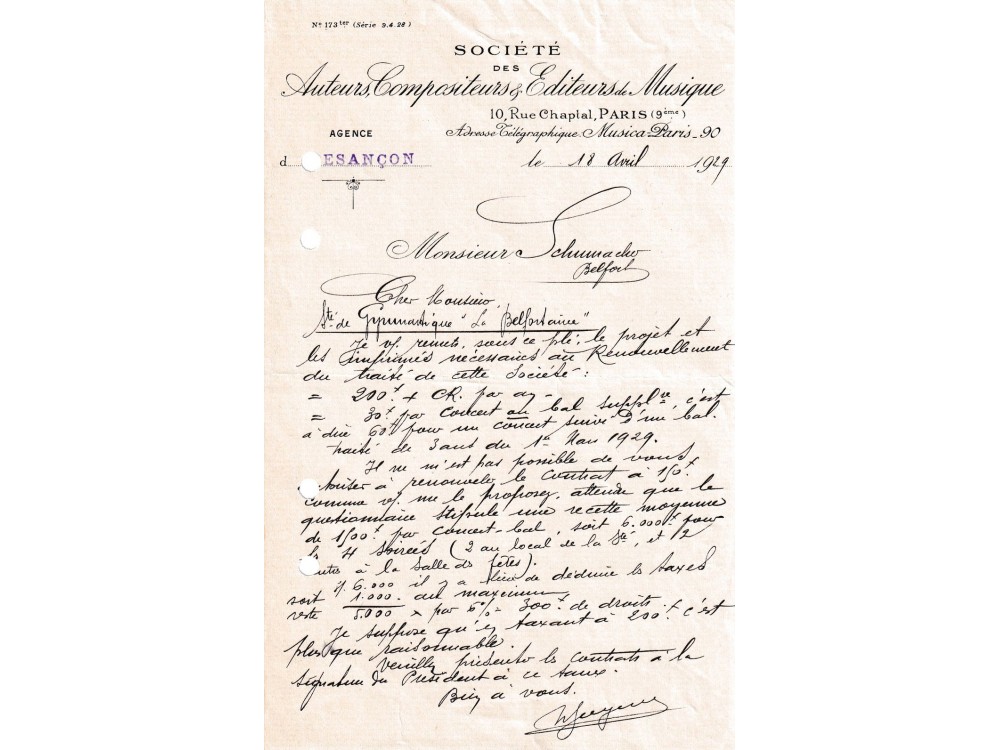 Nº 173 ter (Série 9.4.28)
SOCIÉTÉ
DES
Auteurs, Compositeurs & Editeurs de Musique
10, Rue Chaptal, PARIS (9ème)
Adresse Télégraphique. Musica-Paris-90
AGENCE
d ESANÇON
le 18 Avril 1929
Monsieur Schumacher
Belfort
Cher Monsieur,
Sté de Gymnastique "La Belfortaine"
Je vs. remets, sous ce pli, le projet et
les imprimés nécessaires au Renouvellement
du traité de cette Société :
= 200 f + CR. par an -
= 30 f par concert ou bal supplre, c'est
à dire 60 f pour un concert suivi d'un bal.
traité de 3 ans du 1er Mars 1929.
Il ne m'est pas possible de vous
à renouveler le contrat à 150 f.
comme vs. me le proposez, attendu que le
questionnaire stipule une recette moyenne
de 1500 f par concert-bal, soit 6.000 f pour
les 4 soirées (2 au local de la Sté, et 2
à la salle des fêtes).
s/. 6.000 il y a lieu de déduire les taxes
soit 1.000. au maximum,
reste 5.000 × par 6% = 300 f. de droits.
Je suppose qu'en taxant à 200 f. c'est
plus que raisonnable.
Veuillez présenter les contrats à la
signature du Président à ce taux.
Bien à vous.